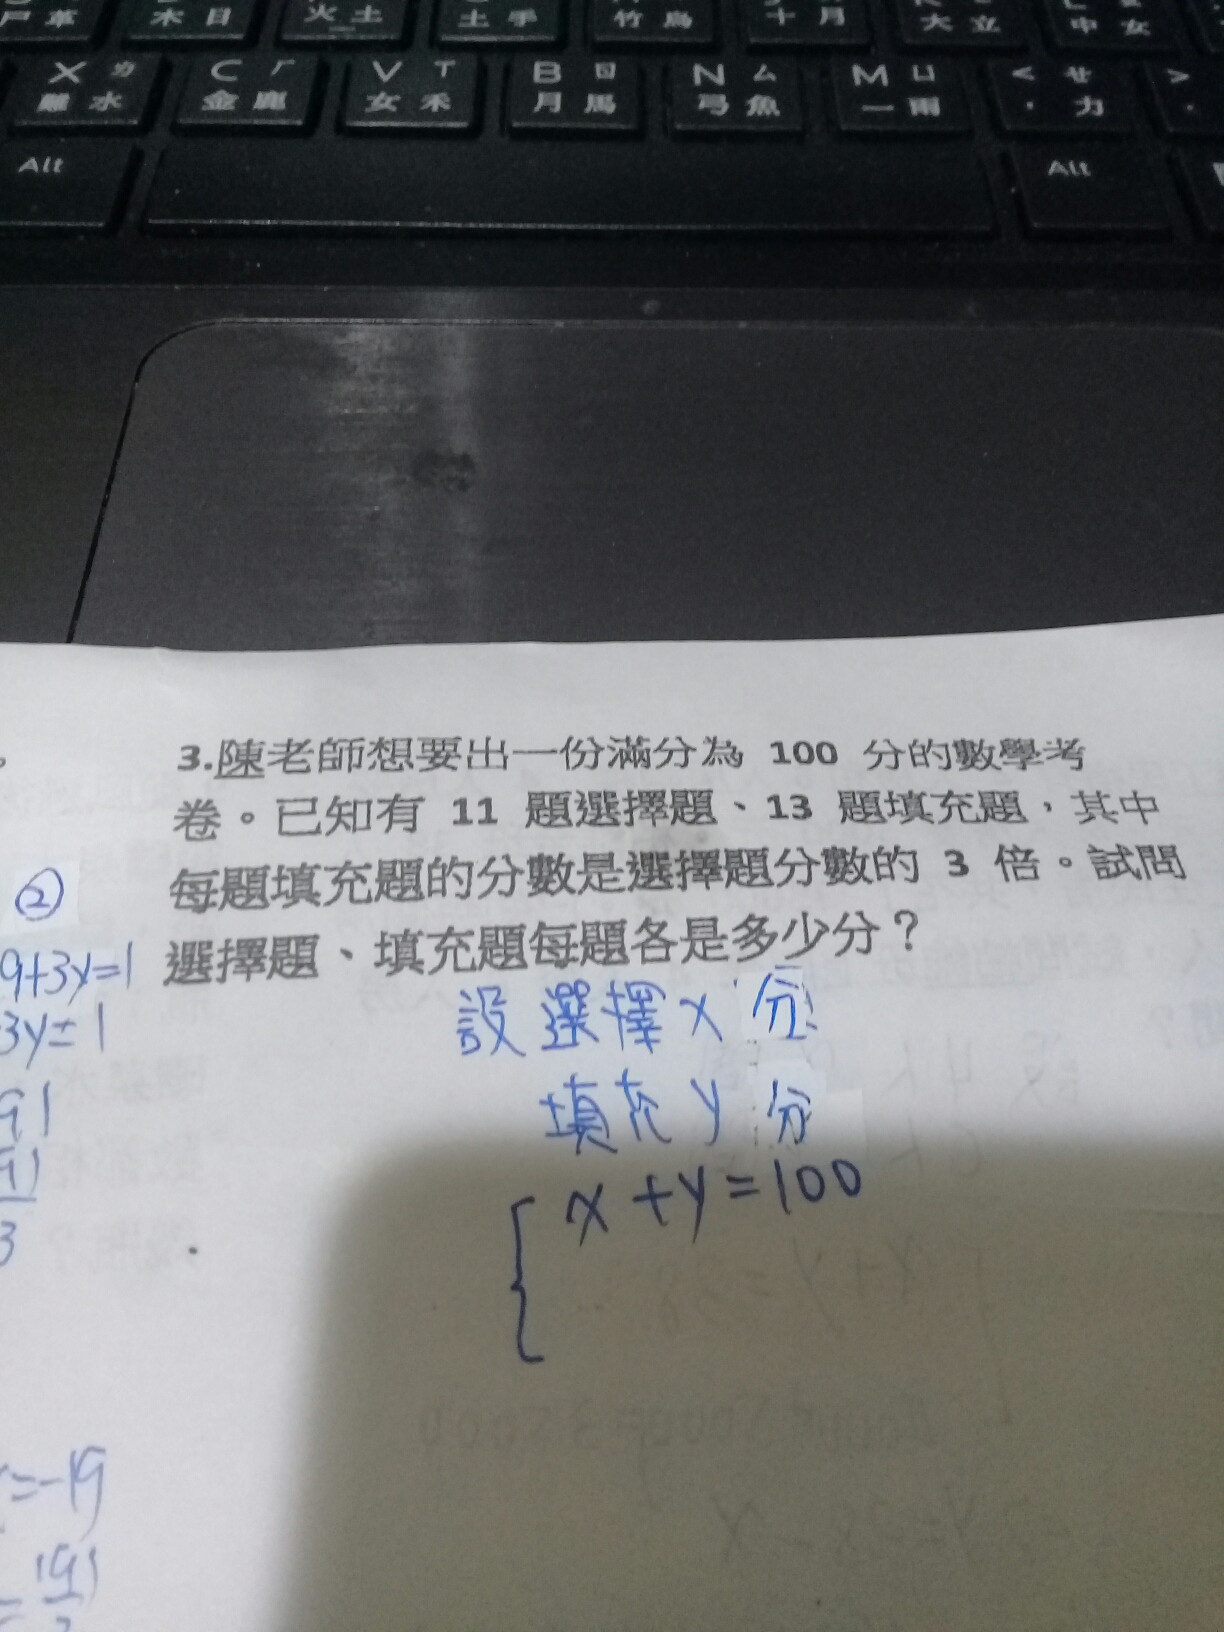 尸 革 木 日 火 土 土 手 竹 鳥 十 月 大 立 中 女
X ㄌ C ㄏ V ㄒ B ㄖ N ㄙ M ㄩ < ㄝ >
難 水 金 鹿 女 禾 月 馬 弓 魚 一 雨 , 力 .
Alt Alt
3.陳老師想要出一份滿分為 100 分的數學考
卷。已知有 11 題選擇題、13 題填充題,其中
每題填充題的分數是選擇題分數的 3 倍。試問
選擇題、填充題每題各是多少分?
②
9+3y=1
3y=1
91
3
設選擇 x 分
填充 y 分
x+y=100
=-19